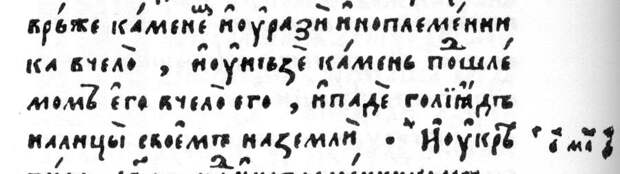 врь́же ка́менеⷨ и҆ѹ҆рази̑ и҆ноплеме́нни
ка вчело̀ , и҆ѹ҆ньзѐ ка́мень поⷣшле́
момъ є҆го вчело є҆го , и҆падѐ голїа̑дъ
налицы̀ своє́мъ наземли̑ . И҆ѹ҆крѣ